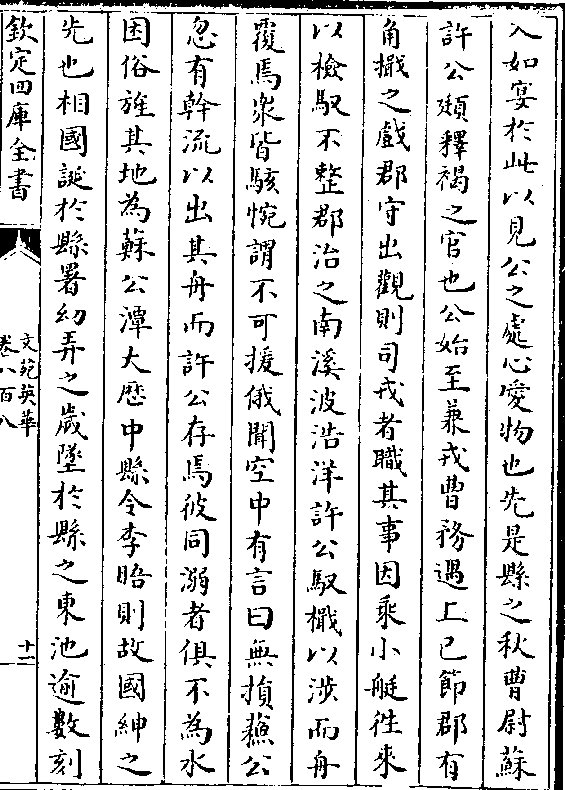 入如宴於此以見公之處心愛物也先是縣之秋曹尉蘇
許公頲釋褐之官也公始至兼戎曹務遇上已節郡有
角撖之戲郡守出觀則司戎者職其事因乘小艇徃來
以檢馭不整郡治之南溪波浩洋許公馭檝以渉而舟
覆焉衆皆駭惋謂不可援俄聞空中有言曰無損蘓公
忽有幹流以出其舟而許公存焉彼同溺者俱不為水
困俗旌其地為蘇公潭大歴中縣令李晤則故國紳之
先也相國誕於縣署幼弄之歲墜於縣之東池逾數刻
欽定四庫全書
文苑英華
卷八百八
十一